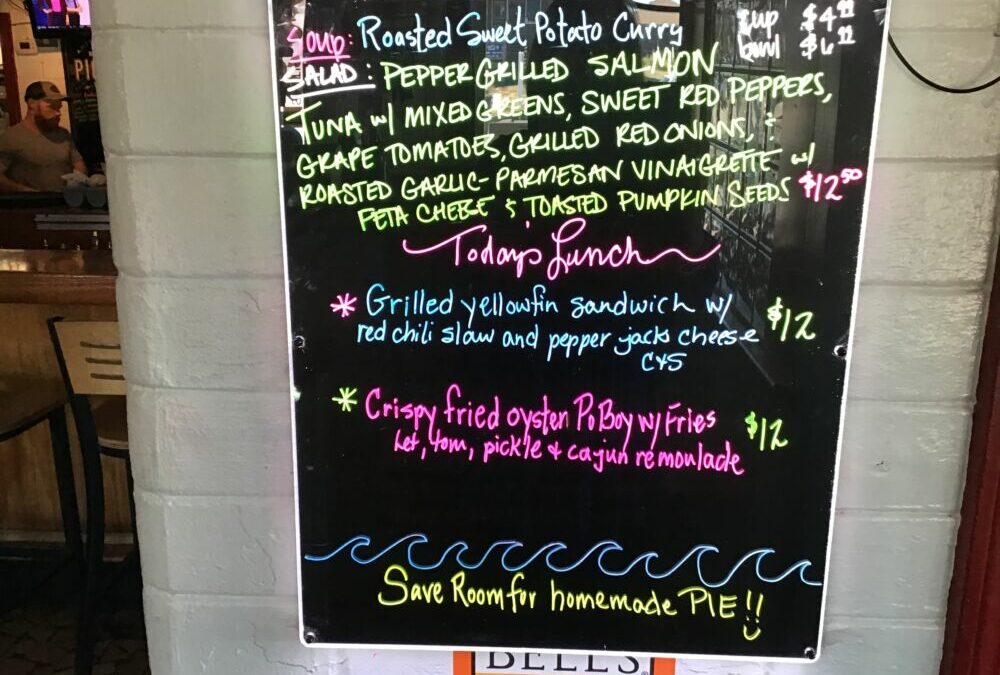 Soup: Roasted Sweet Potato Curry
cup $4
bowl $6
SALAD: PEPPER GRILLED SALMON
TUNA w/ MIXED GREENS, SWEET RED PEPPERS,
GRAPE TOMATOES, GRILLED RED ONIONS, &
ROASTED GARLIC-PARMESAN VINAIGRETTE w/
FETA CHEESE & TOASTED PUMPKIN SEEDS $12.50
Today's Lunch
* Grilled yellowfin sandwich w/ $12
red chili slaw and pepper jack cheese
* Crispy fried oyster PoBoy w/ Fries $12
Let, tom, pickle & cajun remoulade
Save Room for homemade PIE!!
BELL'S
PI